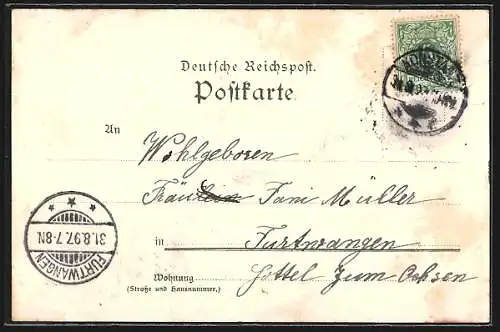 Deutsche Reichspost.
Postkarte
KONSTANZ
An
Wohlgeboren
Fräulein Fani Müller
in Furtwangen
Wohnung Hottel Zum Ochsen
(Straße und Hausnummer.)
FURTWANGEN
31.8.97.7-8N.